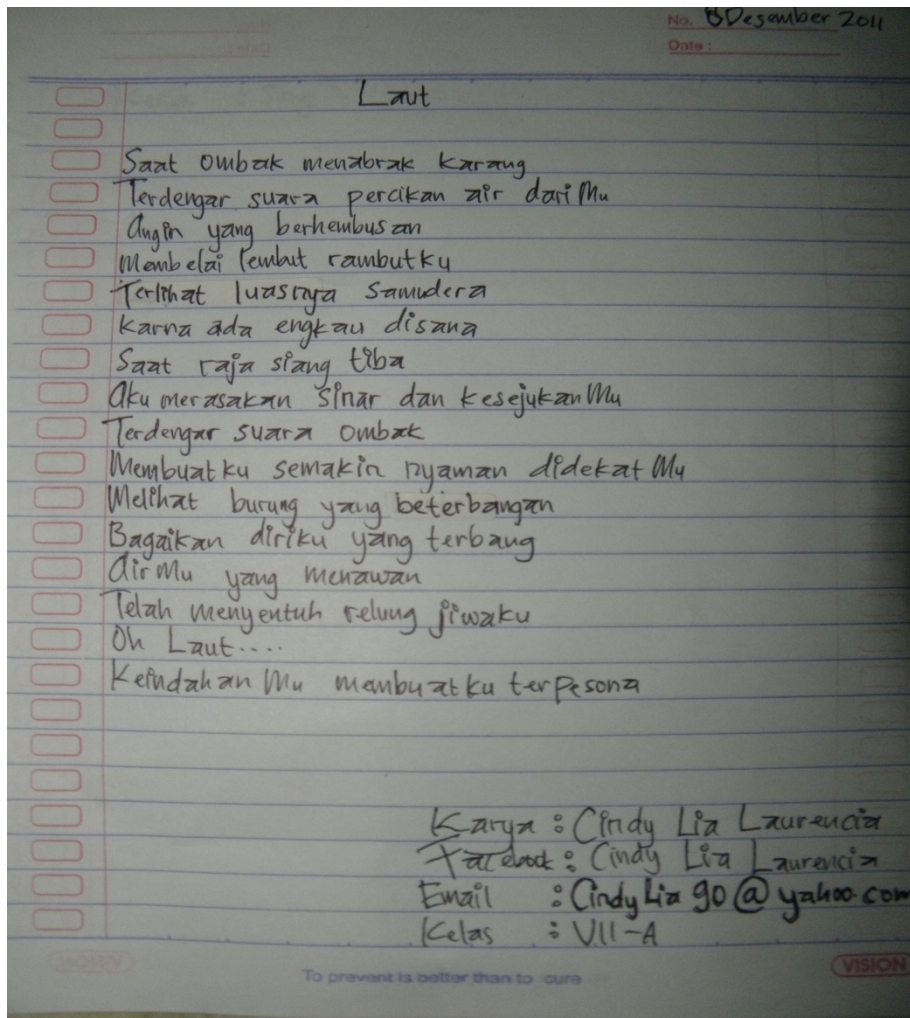 No. 8 Desember 2011
Date :
Laut
Saat ombak menabrak karang
Terdengar suara percikan air dariMu
Angin yang berhembusan
Membelai lembut rambutku
Terlihat luasnya Samudera
Karna ada engkau disana
Saat raja siang tiba
Aku merasakan Sinar dan kesejukanMu
Terdengar suara Ombak
Membuatku semakin nyaman didekatMu
Melihat burung yang beterbangan
Bagaikan diriku yang terbang
AirMu yang menawan
Telah menyentuh relung jiwaku
Oh Laut....
KeindahanMu membuatku terpesona
Karya : Cindy Lia Laurencia
Facebook : Cindy Lia Laurencia
Email : CindyLia90@yahoo.com
Kelas : VII-A
To prevent is better than to cure
VISION